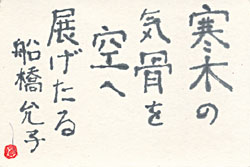 寒木の
気骨を
空へ
展げたる
船橋允子